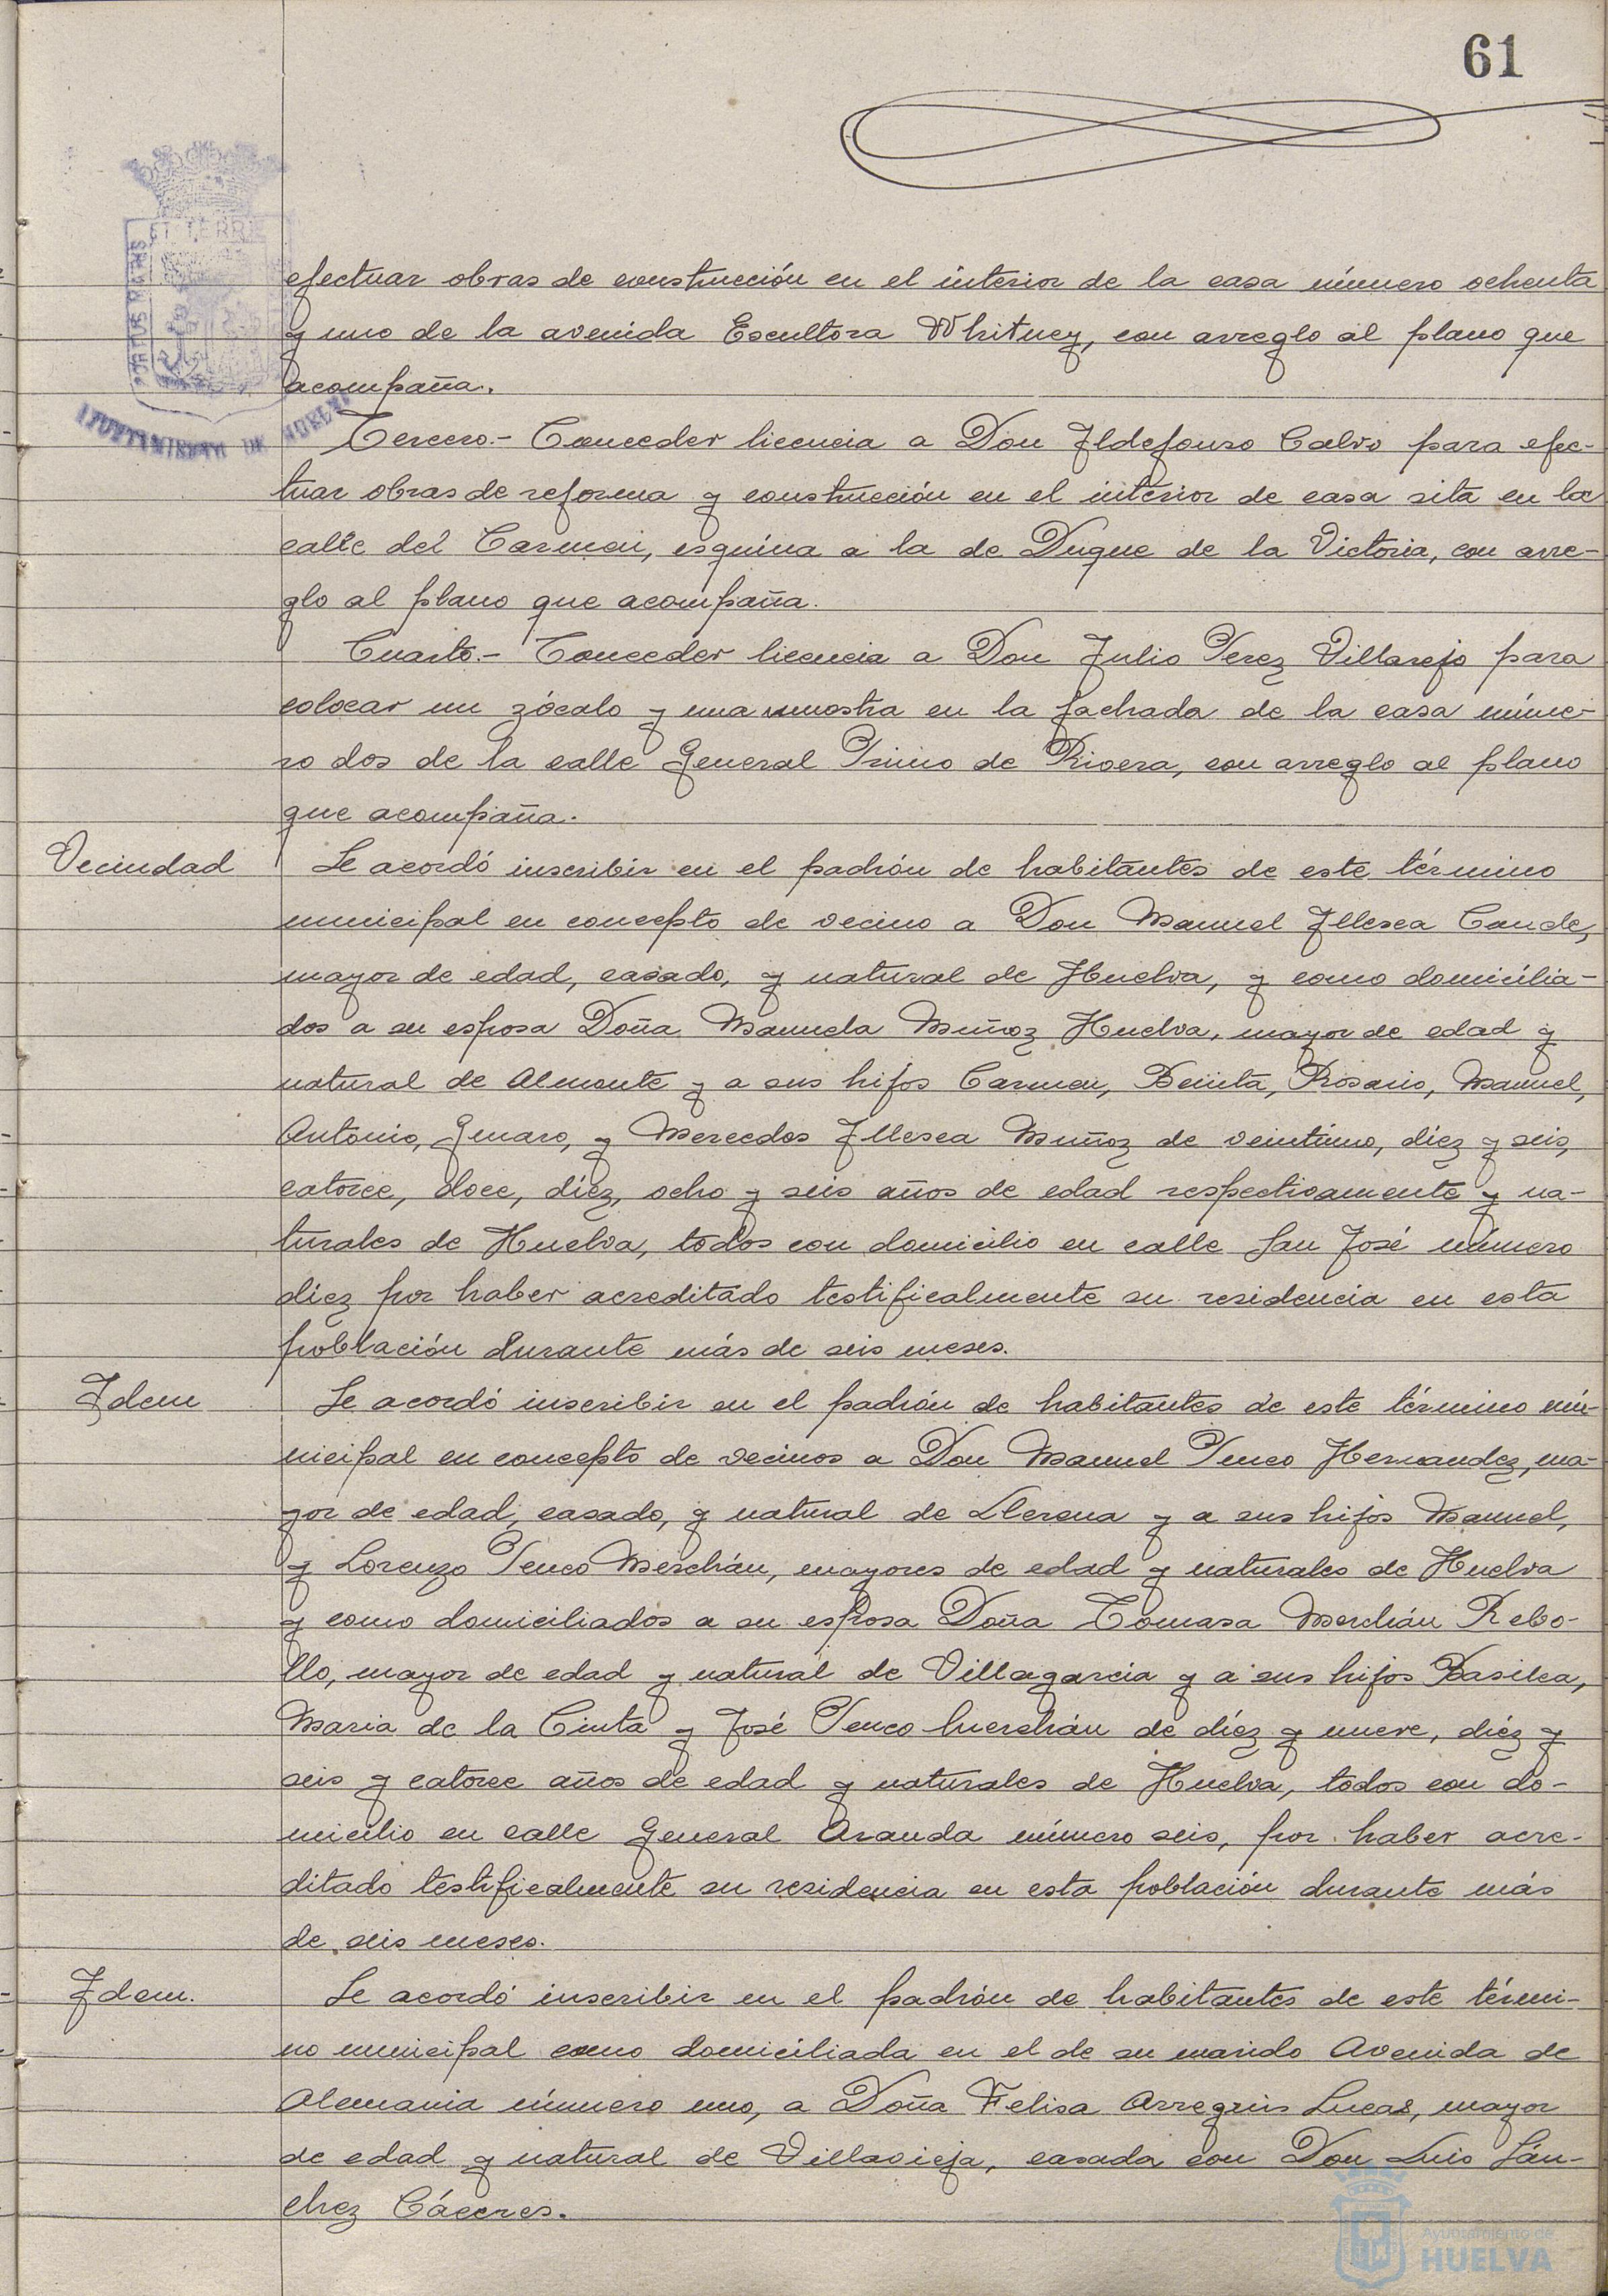 61
ET TERRE
AYUNTAMIENTO DE HUELVA
efectuar obras de construcción en el interior de la casa número ochenta
y uno de la avenida Escultora Whitney, con arreglo al plano que
acompaña.
Tercero.- Conceder licencia a Don Ildefonso Calvo para efec-
tuar obras de reforma y construcción en el interior de casa sita en la
calle del Carmen, esquina a la de Duque de la Victoria, con arre-
glo al plano que acompaña.
Cuarto.- Conceder licencia a Don Julio Perez Villarejo para
colocar un zócalo y una muestra en la fachada de la casa núme-
ro dos de la calle General Primo de Rivera, con arreglo al plano
que acompaña.
Vecindad
Se acordó inscribir en el padrón de habitantes de este término
municipal en concepto de vecino a Don Manuel Illesca Conde,
mayor de edad, casado, y natural de Huelva, y como domicilia-
dos a su esposa Doña Manuela Muñoz Huelva, mayor de edad y
natural de Almonte y a sus hijos Carmen, Benita, Rosario, Manuel,
Antonio, Genaro, y Mercedes Illesca Muñoz de veintiuno, diez y seis,
catorce, doce, diez, ocho y seis años de edad respectivamente y na-
turales de Huelva, todos con domicilio en calle San José número
diez por haber acreditado testificalmente su residencia en esta
población durante más de seis meses.
Idem
Se acordó inscribir en el padrón de habitantes de este término mu-
nicipal en concepto de vecinos a Don Manuel Penco Hernandez, ma-
yor de edad, casado, y natural de Llerena y a sus hijos Manuel,
y Lorenzo Penco Merchán, mayores de edad y naturales de Huelva
y como domiciliados a su esposa Doña Tomasa Merchán Rebo-
llo, mayor de edad y natural de Villagarcia y a sus hijos Basilea,
Maria de la Cinta y José Penco Merchán de diez y nueve, diez y
seis y catorce años de edad y naturales de Huelva, todos con do-
micilio en calle General Aranda número seis, por haber acre-
ditado testificalmente su residencia en esta población durante más
de seis meses.
Idem.
Se acordó inscribir en el padrón de habitantes de este térmi-
no municipal como domiciliada en el de su marido Avenida de
Alemania número uno, a Doña Felisa Arreguis Lucas, mayor
de edad y natural de Villavieja, casada con Don Luis Sán-
chez Cáceres.
Ayuntamiento de
HUELVA